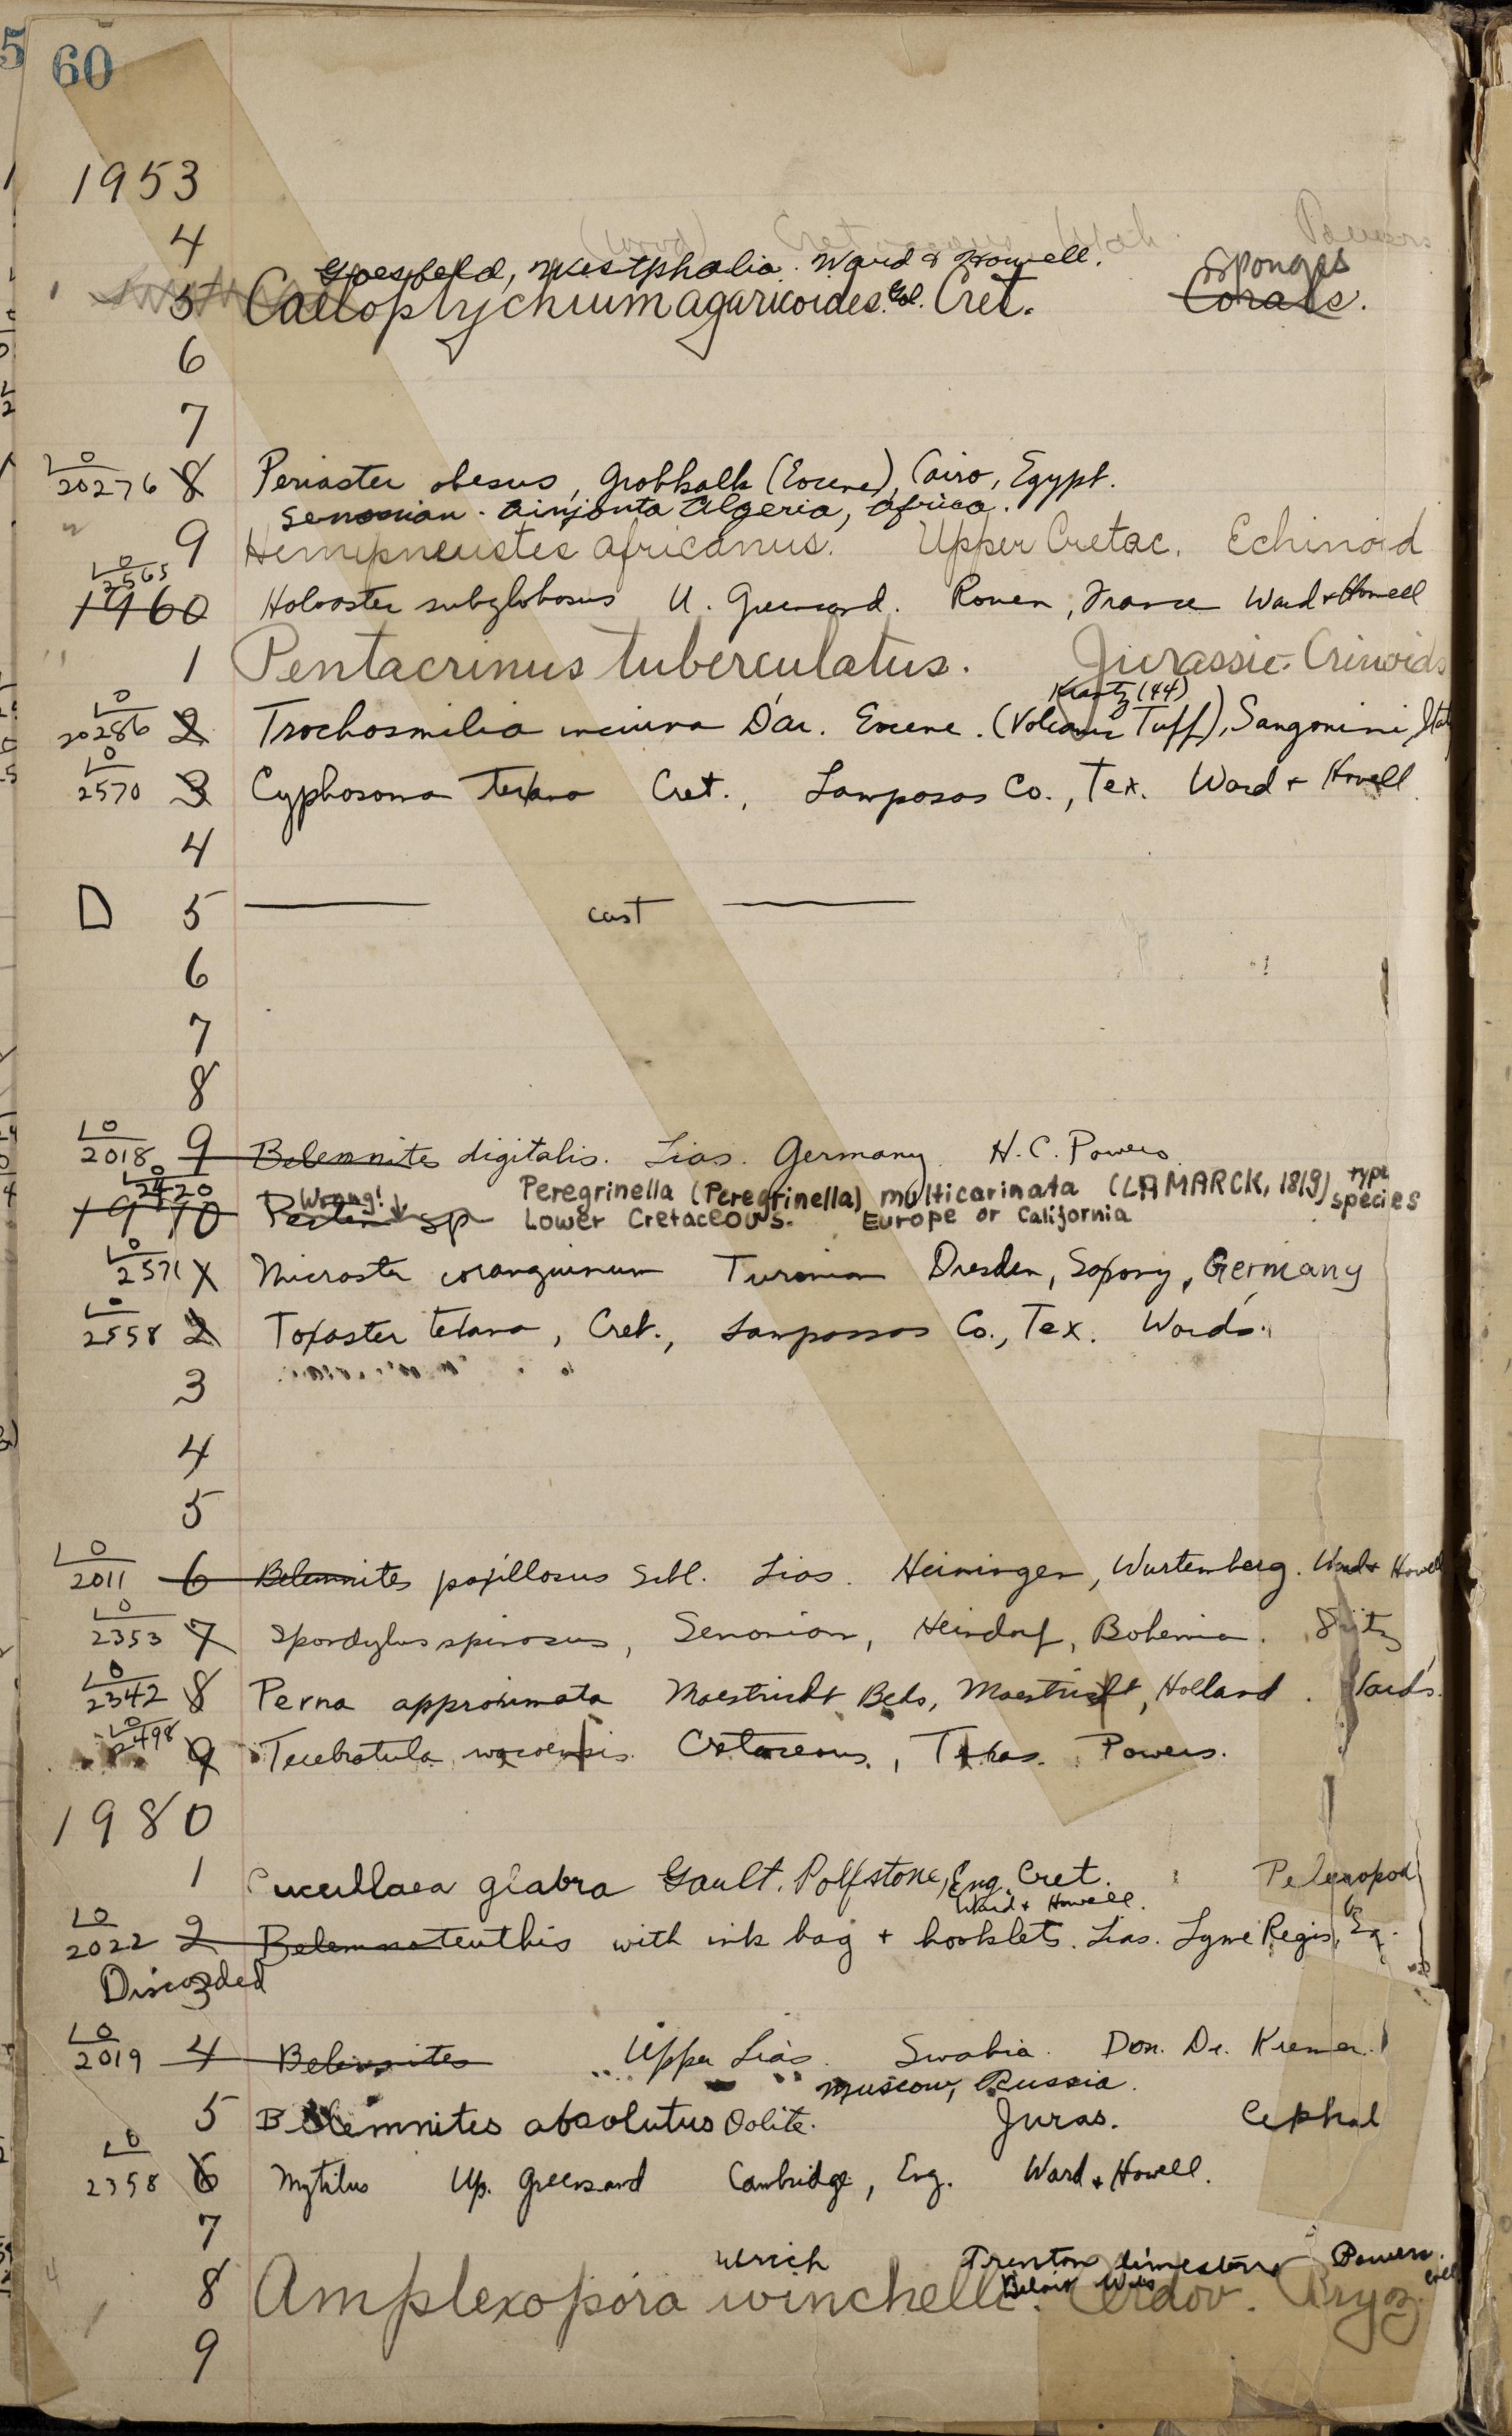 60
1953
4
Coesfeld, Westphalia. Ward & Howell. Sponges
5 Caeloptychium agaricoides. Gol. Cret. Corals.
6
7
LO
20276 8 Periaster obesus, Grobkalk (Eocene), Cairo, Egypt.
Senonian. Algeria, Africa.
9 Hemipneustes africanus. Upper Cretac. Echinoid
LO
2565
1960 Holaster subglobosus U. Greensand. Rouen, France Ward & Howell
1 Pentacrinus tuberculatus. Jurassic. Crinoids
LO Krantz (44)
20286 2 Trochosmilia D'Ar. Eocene. (Volcanic Tuff), Sangonini, Italy
LO
2570 3 Cyphosoma Texana Cret., Lampasas Co., Tex. Ward & Howell
4
D 5 cast
6
7
8
LO
2018 9 Belemnites digitalis. Lias. Germany. H. C. Powers.
LO
2420 Wrong! Peregrinella (Peregrinella) multicarinata (LAMARCK, 1819) type species
1970 Pecten sp Lower Cretaceous. Europe or California
LO
2571 1 Micraster coranguinum Turonian Dresden, Saxony, Germany
LO
2558 2 Toxaster texana, Cret., Lampasas Co., Tex. Ward's.
3
4
5
LO
2011 6 Belemnites papillosus Schl. Lias. Heiningen, Wurtemberg. Ward & Howell
LO
2353 7 Spondylus spinosus, Senonian, Bohemia.
LO
2342 8 Perna approximata Maestricht Beds, Maestricht, Holland. Ward's.
LO
2498 9 Terebratula wacoensis. Cretaceous, Texas. Powers.
1980
1 Cucullaea glabra Gault. Folfstone, Eng. Cret. Pelecypod
Ward & Howell.
LO
2022 2 Belemnoteuthis with ink bag & hooklets. Lias. Lyme Regis, Eng.
Discarded 3
LO
2019 4 Belemnites Upper Lias. Swabia. Don. Dr. Kremer.
Muscow, Russia.
5 Belemnites absolutus Oolite. Juras. Cephal
LO
2358 6 Mytilus Up. Greensand Cambridge, Eng. Ward & Howell.
7
Ulrich Trenton limestone Powers
Beloit Wis
8 Amplexopora winchelli. Ordov. Bryoz.
9